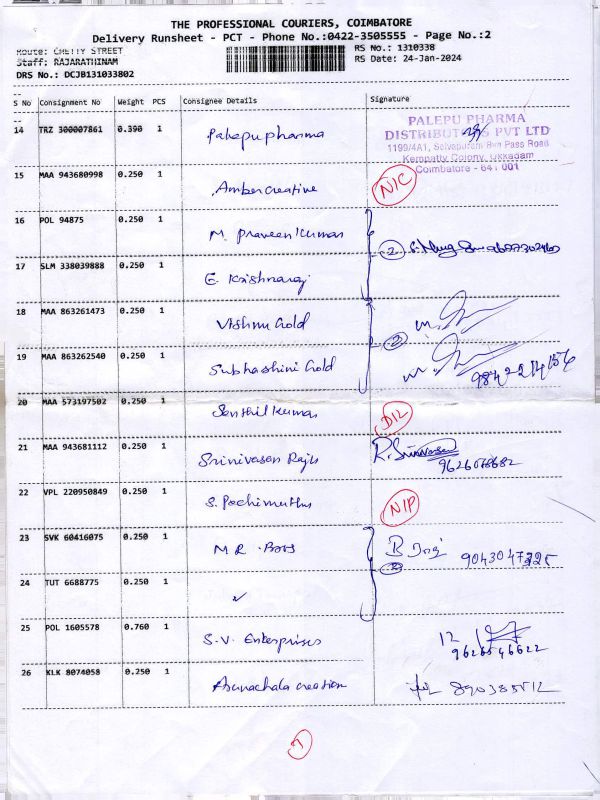 THE PROFESSIONAL COURIERS, COIMBATORE
Delivery Runsheet - PCT - Phone No.:0422-3505555 - Page No.:2
Route: CHETTY STREET RS No.: 1310338
Staff: RAJARATHINAM RS Date: 24-Jan-2024
DRS No.: DCJB131033802
S No Consignment No Weight PCS Consignee Details Signature
14 TRZ 300007861 0.390 1 Palepu pharma
PALEPU PHARMA
DISTRIBUTORS PVT LTD
1199/4A1, Selvapuram Bye Pass Road
Kempatty Colony, Ukkadam
Coimbatore - 641 001
15 MAA 943680998 0.250 1 Amber creative N/C
16 POL 94875 0.250 1 M. Praveen Kumar
2
17 SLM 338039888 0.250 1 E. Krishnaraj
18 MAA 863261473 0.250 1 Vishnu Gold
19 MAA 863262540 0.250 1 Subhashini Gold
20 MAA 573197502 0.250 1 Senthil Kumar D/L
21 MAA 943681112 0.250 1 Srinivasan Raju R. Srinivasan
22 VPL 220950849 0.250 1 S. Pechimuthu N/P
23 SVK 60416075 0.250 1 M R
24 TUT 6688775 0.250 1
25 POL 1605578 0.760 1 S.V. Enterprises 12
26 KLK 8074058 0.250 1 Arunachala creation